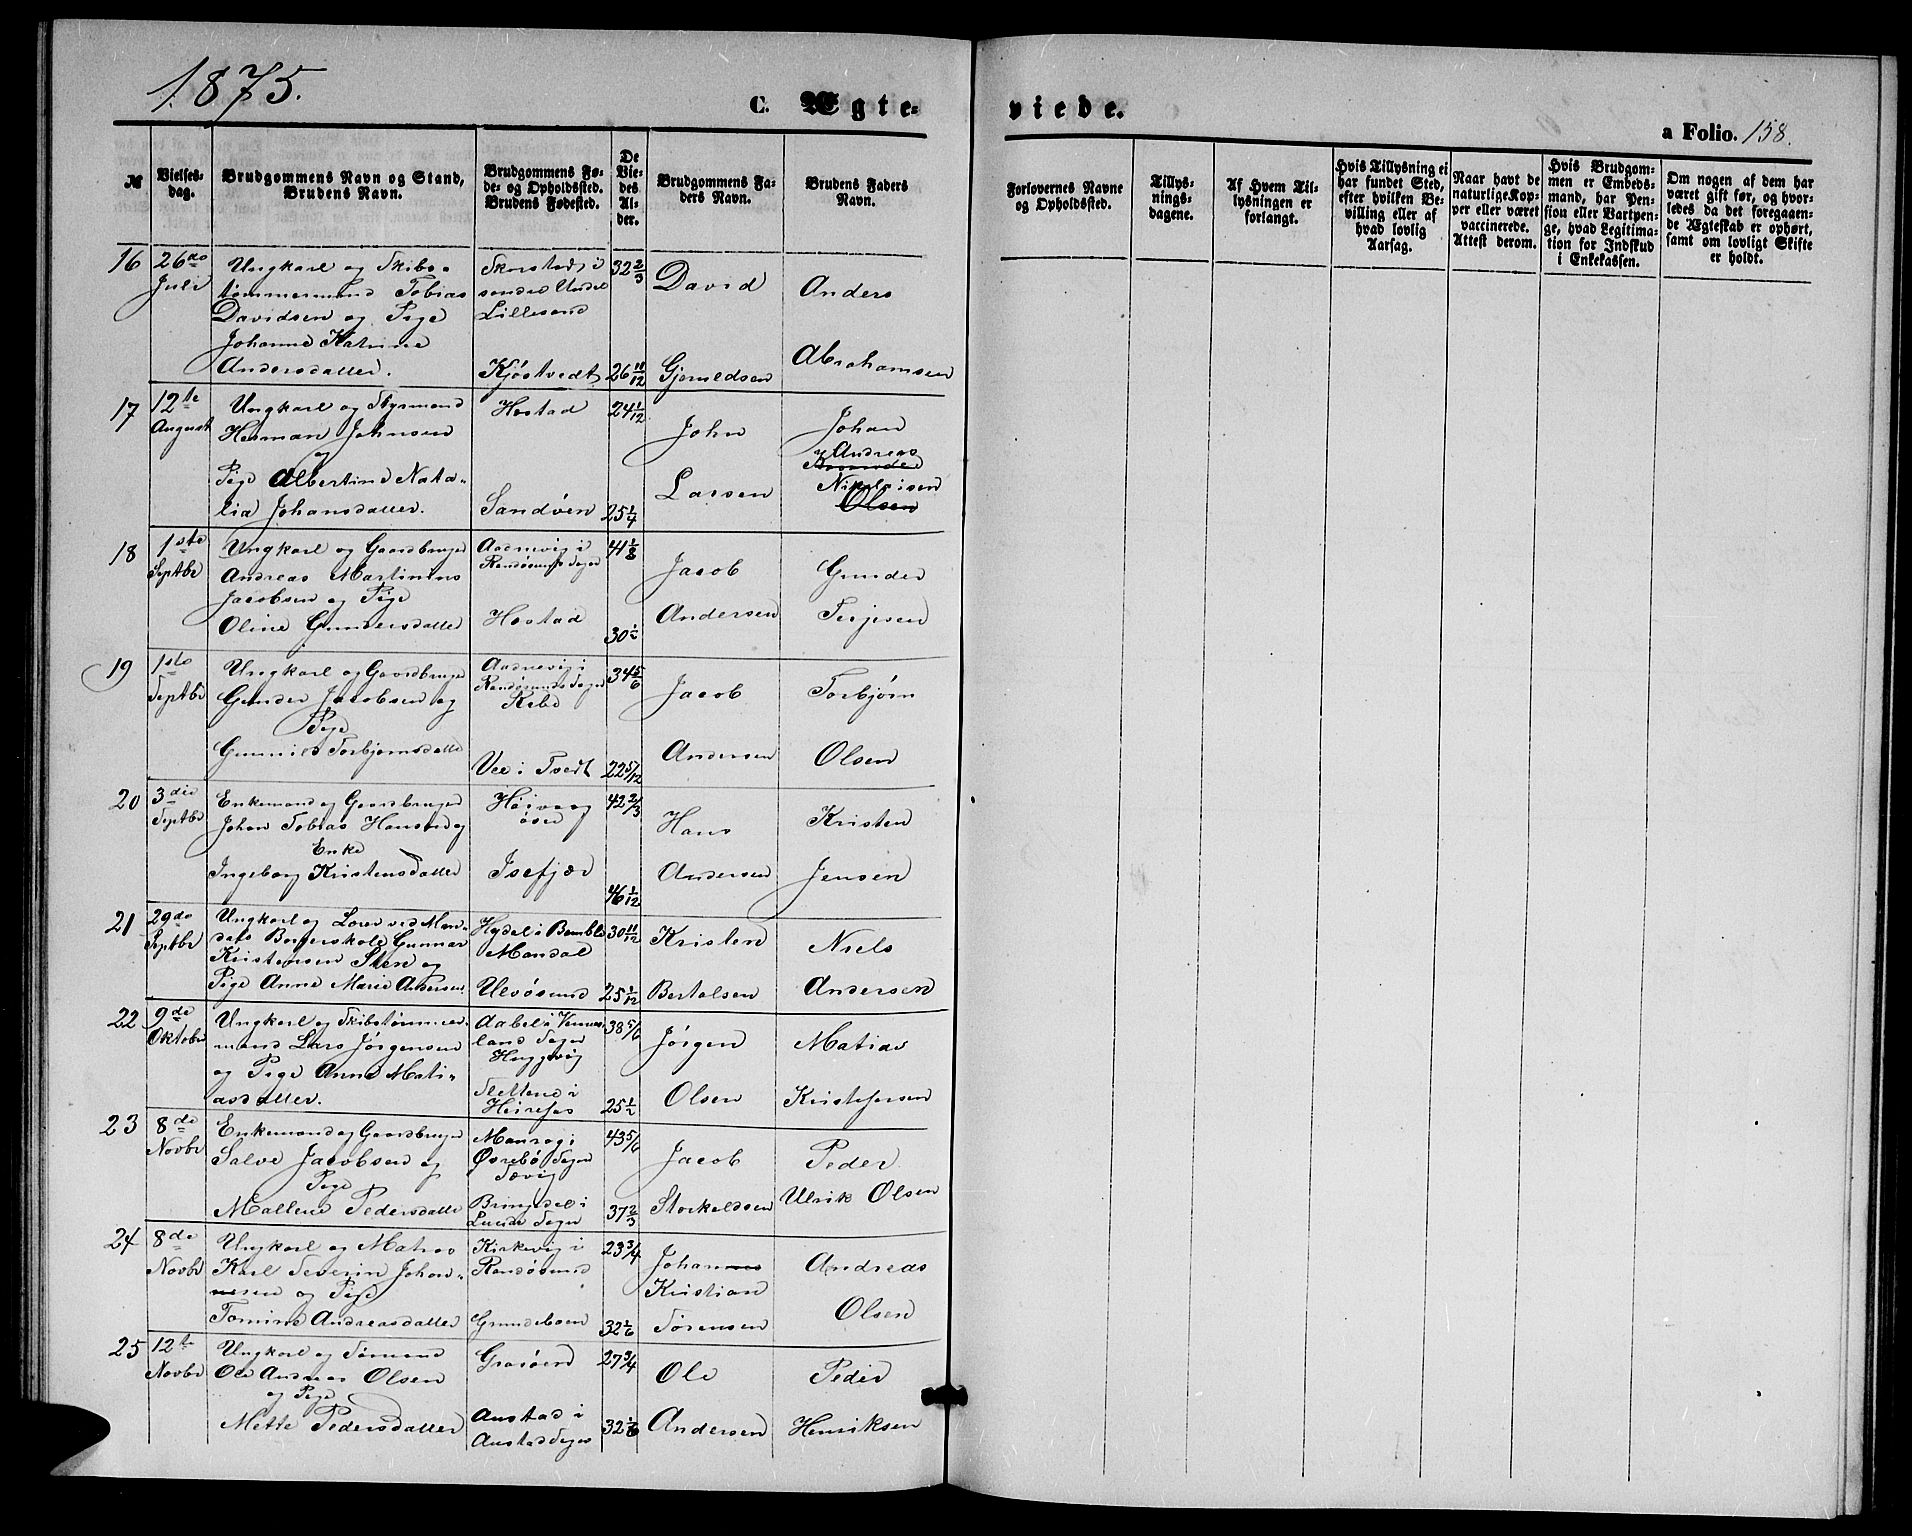 1875.
C. Ægte-
viede.
a Folio. 158.
№
Vielses-
dag.
Brudgommens Navn og Stand,
Brudens Navn.
Brudgommens Fø-
de- og Opholdssted.
Brudens Fødested.
De
Vie-
des
Al-
der.
Brudgommens Fa-
ders Navn.
Brudens Faders
Navn.
Forlovernes Navne
og Opholdssted.
Tillys-
nings-
dagene.
Af Hvem Til-
lysningen er
forlangt.
Hvis Tillysning ei
har fundet Sted,
efter hvilken Be-
villing eller af
hvad lovlig
Aarsag.
Naar havt de
naturlige Kop-
per eller været
vaccinerede.
Attest derom.
Hvis Brudgom-
men er Embeds-
mand, har Pen-
sion eller Vartpen-
ge, hvad Legitima-
tion for Indskud
i Enkekassen.
Om nogen af dem har
været gift før, og hvor-
ledes da det foregaaen-
de Ægteskab er ophørt,
samt om lovligt Skifte
er holdt.
16
26de
Juli
Ungkarl og Skibs-
tømmermand Tobias
Davidsen og Pige
Johanne Katrine
Andersdatter.
Lillesand
Kjøstvedt
32 2/3
26 11/12
David
Gjeruldsen
Anders
Abrahamsen
17
12te
August
Ungkarl og Styrmand
Herman Johnsen
og
Pige Albertine Nata-
lia Johansdatter.
Hæstad
Sandvén
24 1/12
25 1/4
John
Larsen
Johan
Andreas
Nikolaisen
Olsen
18
1ste
Septbr
Ungkarl og Gaardbruger
Andreas Martinius
Jacobsen og Pige
Oline Gundersdatter
Aasnevig i
Randøsunds Sogn
Hæstad
41 1/8
30 1/2
Jacob
Andersen
Gunder
Terjesen
19
1ste
Septbr
Ungkarl og Gaardbruger
Gunder Jacobsen og
Pige
Gunnild Torbjørnsdatter
Aasnevig i
Randøsunds Sogn
Kebe
Vee i Tvedt
34 5/6
22 5/12
Jacob
Andersen
Torbjørn
Olsen
20
3die
Septbr
Enkemand og Gaardbruger
Johan Tobias Hansen og
Enke
Ingeborg Kristensdatter
Høivaag
Isefjær
42 2/3
46 1/12
Hans
Andersen
Kristen
Jensen
21
29de
Septbr
Ungkarl og Lærer ved Man-
dals Borgerskole Gunnar
Kristensen Sten og
Pige Anne Marie Andersen.
Hydel i Bamble
Mandal
Ulvøsund
30 11/12
25 1/12
Kristen
Bertelsen
Niels
Andersen
22
9de
Oktober
Ungkarl og Skibstømmer-
mand Lars Jørgensen
og Pige Anne Mati-
asdatter.
Aabel i Vennes-
land Sogn
Slettene i
Heirefos
38 5/6
25 1/2
Jørgen
Olsen
Matias
Kristofersen
23
8de
Novbr
Enkemand og Gaardbruger
Salve Jacobsen og
Pige
Mallene Pedersdatter
Øvrebø Sogn
Sævig
Bringsdel i
43 5/6
37 2/3
Jacob
Storkeldsen
Peder
Ulrik Olsen
24
8de
Novbr
Ungkarl og Matros
Karl Severin Johan-
nesen og Pige
Tomine Andreasdatter
Kirkevig i
Randøsund
Grundeboen
23 3/4
32 1/6
Johannes
Kristian
Sørensen
Andreas
Olsen
25
12te
Novbr
Ungkarl og Sømand
Ole Andreas Olsen
og Pige
Mette Pedersdatter
Grosøen
Austad i
Austad Sogn
27 3/4
32 1/6
Ole
Andersen
Peder
Henriksen